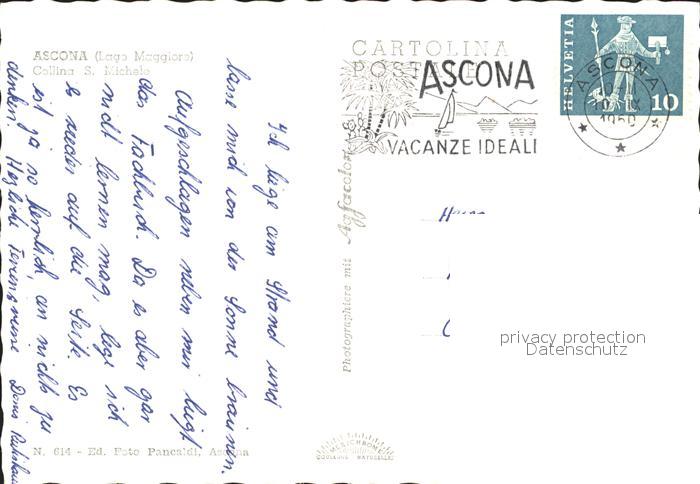 ASCONA (Lago Maggiore)
Collina S. Michele
CARTOLINA
POSTALE
ASCONA
VACANZE IDEALI
HELVETIA
10
ASCONA
Ich liege am Strand und
lasse mich von der Sonne bräunen.
Aufgeschlagen neben mir liegt
das Fachbuch. Da es aber gar
nicht lernen mag, lege ich
es wieder auf die Seite. Es
ist ja so herrlich, an nichts zu
denken. Herzliche Feriengrüsse Doris
Photographiere mit Agfacolor
privacy protection
Datenschutz
MEXICHROME
COULEURS NATURELLES
N. 614 - Ed. Foto Pancaldi, Ascona